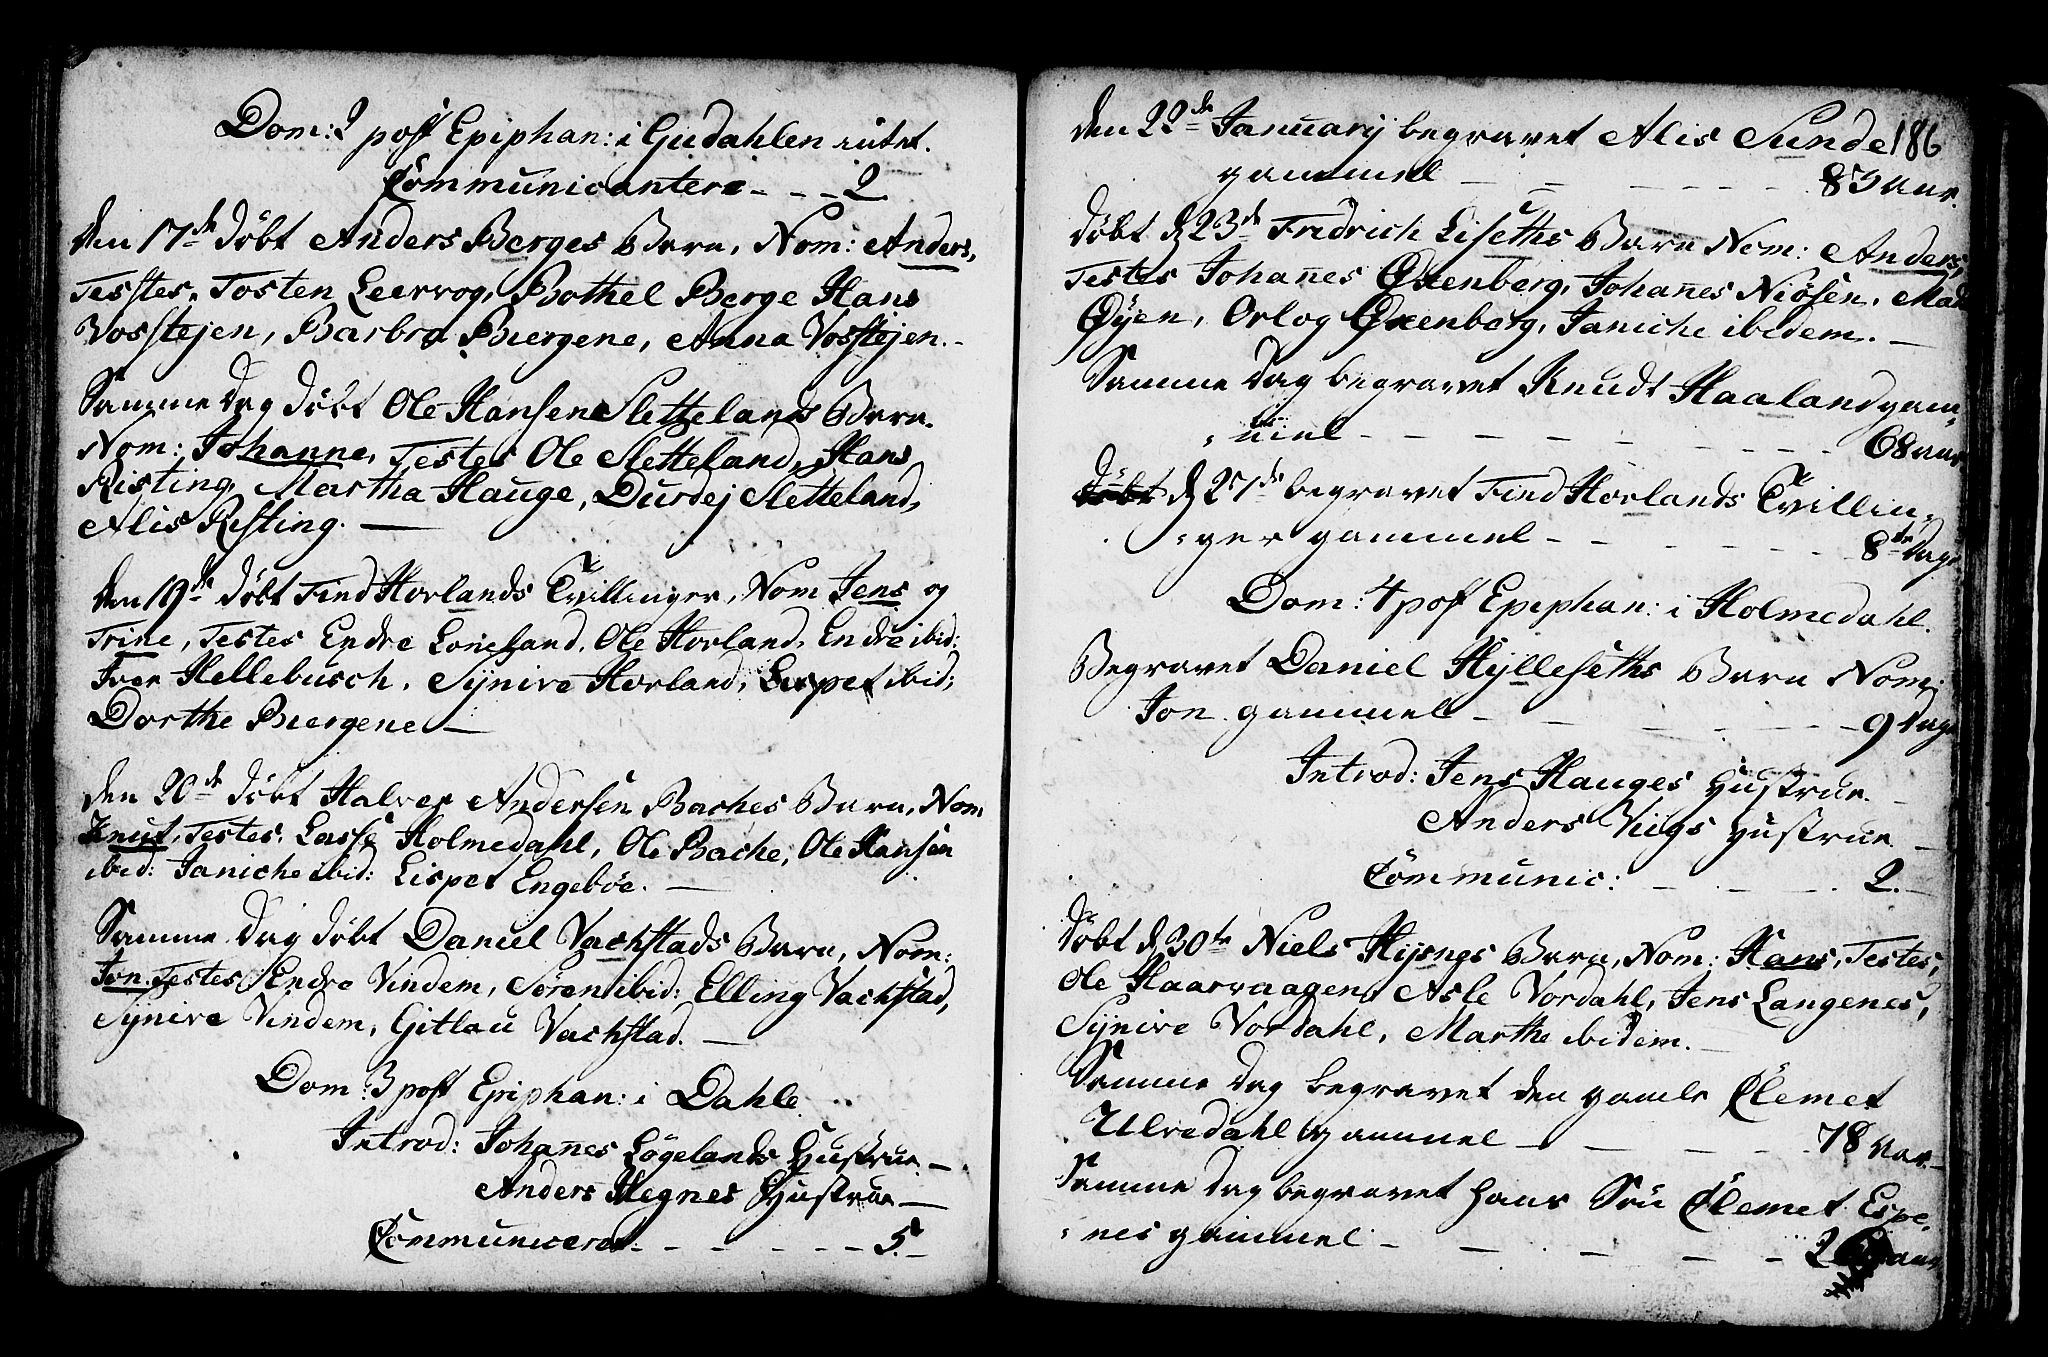 Dom: 2 post Epiphan: i Gudahlen intet.
Communicantere - - - 2
Den 17de døbt Anders Berges Barn, Nom: Anders,
Testes, Tosten Leervog, Bothel Berge Hans
Vosstejen, Barbra Buergene, Anna Vosstejen. -
Samme Dag døbt Ole Hansen Sletteland Barn.
Nom: Johanne, Testes Ole Sletteland, Hans
Risting, Martha Hauge, Durdej Sletteland,
Alis Risting. -
Den 19de døbt Find Horlands Tvillinger, Nom Jens og
Trine, Testes Endre Loneland, Ole Horland, Endre ibid:
Iver Hellebusch, Synive Horland, Lispet ibid;
Dorthe Buergene -
Den 20de døbt Halver Andersen Baches Barn, Nom
Knut, Testes, Lasse Holmedahl, Ole Bache, Ole Hansen
ibid: Janiche ibid: Lispet Engebøe. -
Samme Dag døbt Daniel Vachstads Barn, Nom:
Jon. Testes Endre Vindem, Søren ibid: Elling Vachstad,
Synive Vindem, Gitlau Vachstad. -
Dom: 3 post Epiphan: i Dahle
Introd: Johañes Løgelands Hustrue -
Anders Hegnes Hustrue -
Communiceret - - - - - - 5. -
186
Den 22de January begravet Alis Sunde
gammel - - - - - - 83 aar.
Døbt d 23de Fredrich Liseths Barn Nom: Anders,
Testes Johañes Oxenberg, Johañes Niøsen, Mads
Øyen, Orlog Oxenberg, Janiche ibidem. -
Samme Dag begravet Knudt Haaland gam,
, mel - - - - - - - 68 aar
d 27de begravet Find Horlands Tvillin,
, ger gammel - - - - - - 8te Dage
Dom: 4 post Epiphan: i Holmedahl.
Begravet Daniel Hylleseths Barn Nom:
Jon gammel - - - - - - 9 Dage
Introd: Jens Hauges Hustrue. -
Anders Viigs Hustrue -
Communic: - - - - 2. -
Døbt d 30te Niels Hysnes Barn, Nom: Hans, Testes,
Ole Haarvaagen, Asle Vordahl, Jens Langenes,
Synive Vordahl, Marthe ibidem. -
Samme Dag begravet den gamle Clemet
Ulvedahl gammel - - - - 78 aar -
Samme Dag begravet hans Søn Clemet Espe,
, nes gammel - - - - - 2 aar